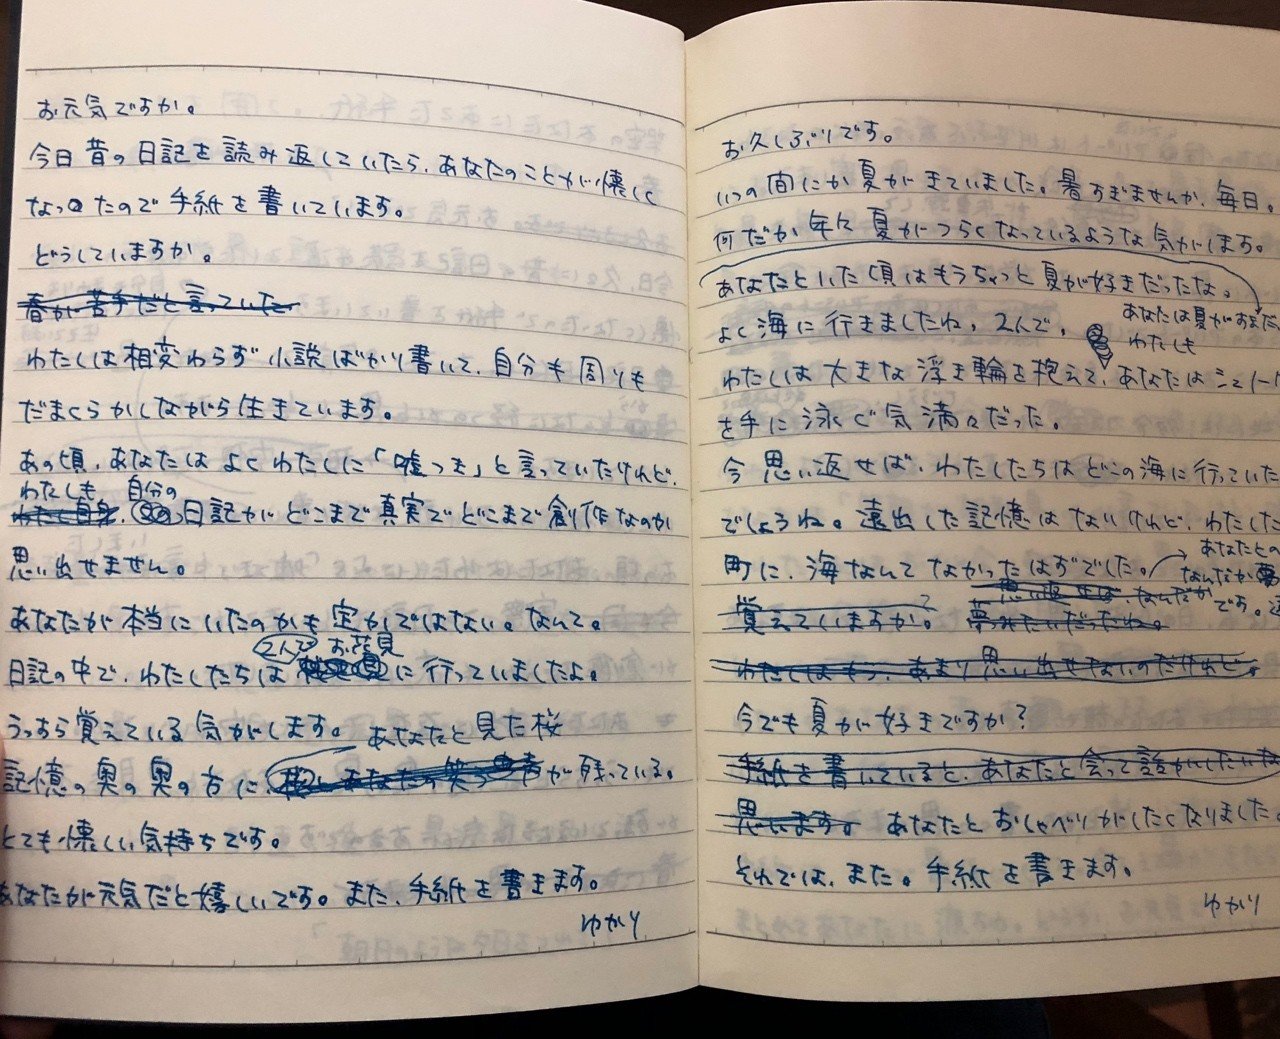 お元気ですか。
今日昔の日記を読み返していたら、あなたのことが懐しく
なったので手紙を書いています。
どうしていますか。
春が苦手だと言っていた
わたしは相変わらず小説ばかり書いて、自分も周りも
だまくらかしながら生きています。
あの頃、あなたはよくわたしに「嘘つき」と言っていたけれど、
わたしも 自分の
わたし自身、日記がどこまで真実でどこまで創作なのか
思い出せません。
あなたが本当にいたのかも定かではない。なんて。
2人で お花見
日記の中で、わたしたちは に行っていましたよ。
うっすら覚えている気がします。 あなたと見た桜
記憶の奥の奥の方に、 あなたの笑う が残っている。
とても懐しい気持ちです。
あなたが元気だと嬉しいです。また、手紙を書きます。
ゆかり
お久しぶりです。
いつの間にか夏がきていました。暑すぎませんか、毎日。
何だか年々夏がつらくなっているような気がします。
あなたといた頃はもうちょっと夏が好きだったな。
あなたは夏がすきだ
わたしも
よく海に行きましたね、2人で。
わたしは大きな浮き輪を抱えて、あなたはシュノーケ
を手に泳ぐ気満々だった。
今思い返せば、わたしたちはどこの海に行っていた
でしょうね。遠出した記憶はないけれど、わたした
町に、海なんてなかったはずでした。
あなたとの
なんだか夢
です。
思い返せば、なんだか
覚えていますか。? 夢みたいだったね。
わたしはもう、あまり思い出せないのだけれど。
今でも夏が好きですか?
手紙を書いていると、あなたと会って話がしたいな
思います。 あなたとおしゃべりがしたくなりました。
それでは、また。手紙を書きます。
ゆかり